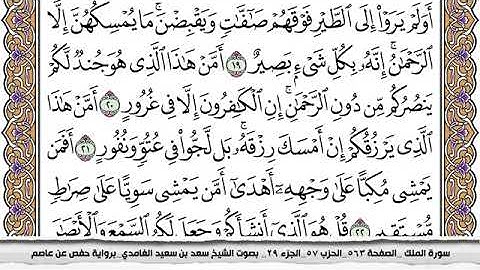 أَوَلَمْ يَرَوْا۟ إِلَى ٱلطَّيْرِ فَوْقَهُمْ صَٰٓفَّٰتٍ وَيَقْبِضْنَ ۚ مَا يُمْسِكُهُنَّ إِلَّا
ٱلرَّحْمَٰنُ ۚ إِنَّهُۥ بِكُلِّ شَىْءٍۭ بَصِيرٌ ١٩ أَمَّنْ هَٰذَا ٱلَّذِى هُوَ جُندٌ لَّكُمْ
يَنصُرُكُم مِّن دُونِ ٱلرَّحْمَٰنِ ۚ إِنِ ٱلْكَٰفِرُونَ إِلَّا فِى غُرُورٍ ٢٠ أَمَّنْ هَٰذَا
ٱلَّذِى يَرْزُقُكُمْ إِنْ أَمْسَكَ رِزْقَهُۥ ۚ بَل لَّجُّوا۟ فِى عُتُوٍّ وَنُفُورٍ ٢١ أَفَمَن
يَمْشِى مُكِبًّا عَلَىٰ وَجْهِهِۦٓ أَهْدَىٰٓ أَمَّن يَمْشِى سَوِيًّا عَلَىٰ صِرَٰطٍ
مُّسْتَقِيمٍ ٢٢ قُلْ هُوَ ٱلَّذِىٓ أَنشَأَكُمْ وَجَعَلَ لَكُمُ ٱلسَّمْعَ وَٱلْأَبْصَٰرَ
سورة الملك _ الصفحة ٥٦٣_ الحزب ٥٧_ الجزء ٢٩_ بصوت الشيخ سعد بن سعيد الغامدي_ برواية حفص عن عاصم